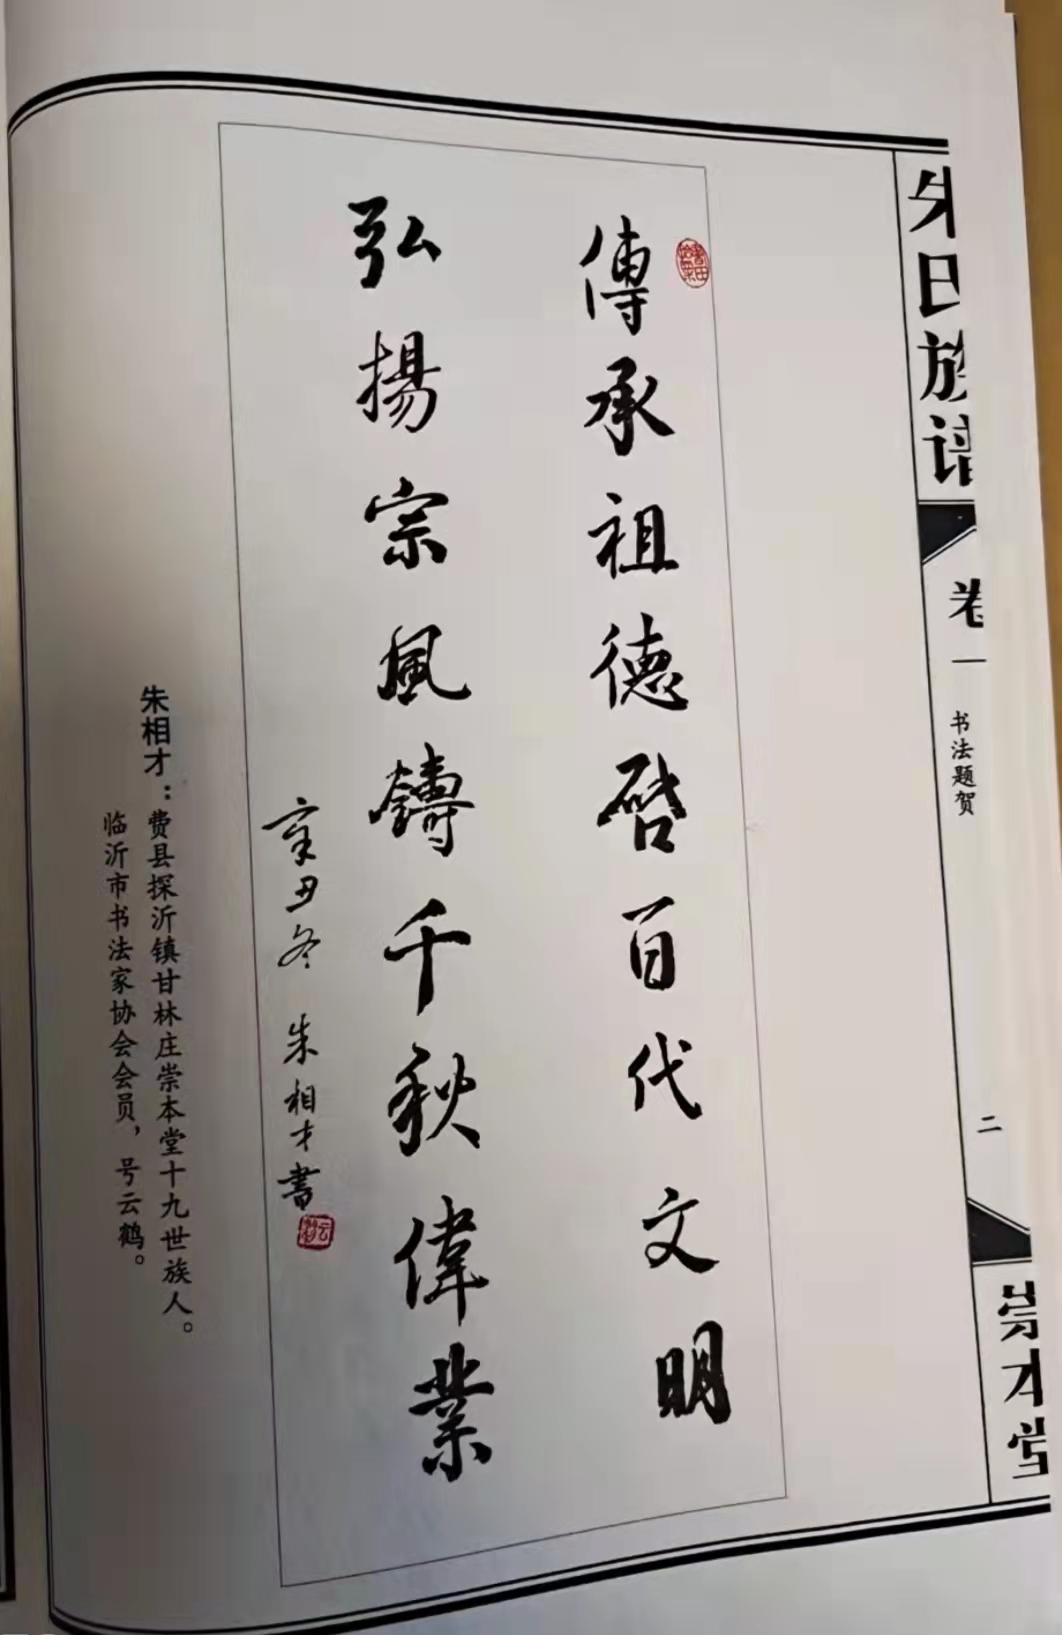 朱氏族谱
卷一
书法题贺
二
崇本堂
傳承祖德啓百代文明
弘揚宗風鑄千秋偉業
辛丑冬 朱相才書
朱相才：费县探沂镇甘林庄崇本堂十九世族人。
临沂市书法家协会会员，号云鹤。